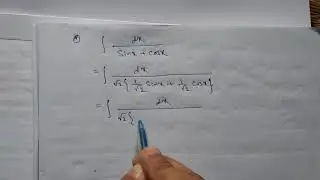 *) ∫ dx / (sinx + cosx)
= ∫ dx / √2 { 1/√2 sinx + 1/√2 cosx }
= ∫ dx / √2 {